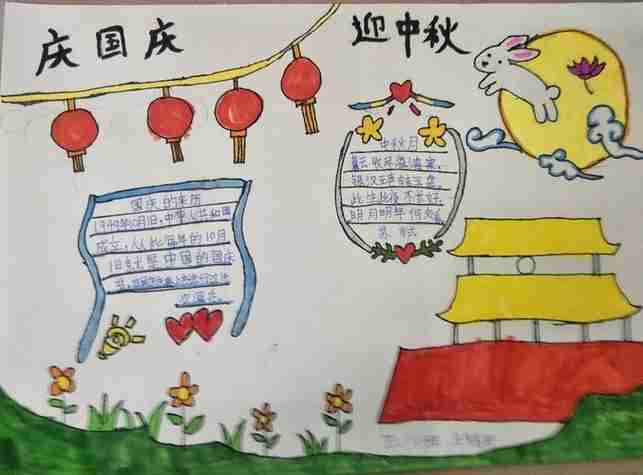 庆国庆
迎中秋
国庆的来历
1949年10月1日,中华人民共和国
成立,从此每年的10月
1日就是中国的国庆
中秋月
暮云收尽溢清寒,
银汉无声转玉盘,
此生此夜不长好,
明月明年何处看
苏轼